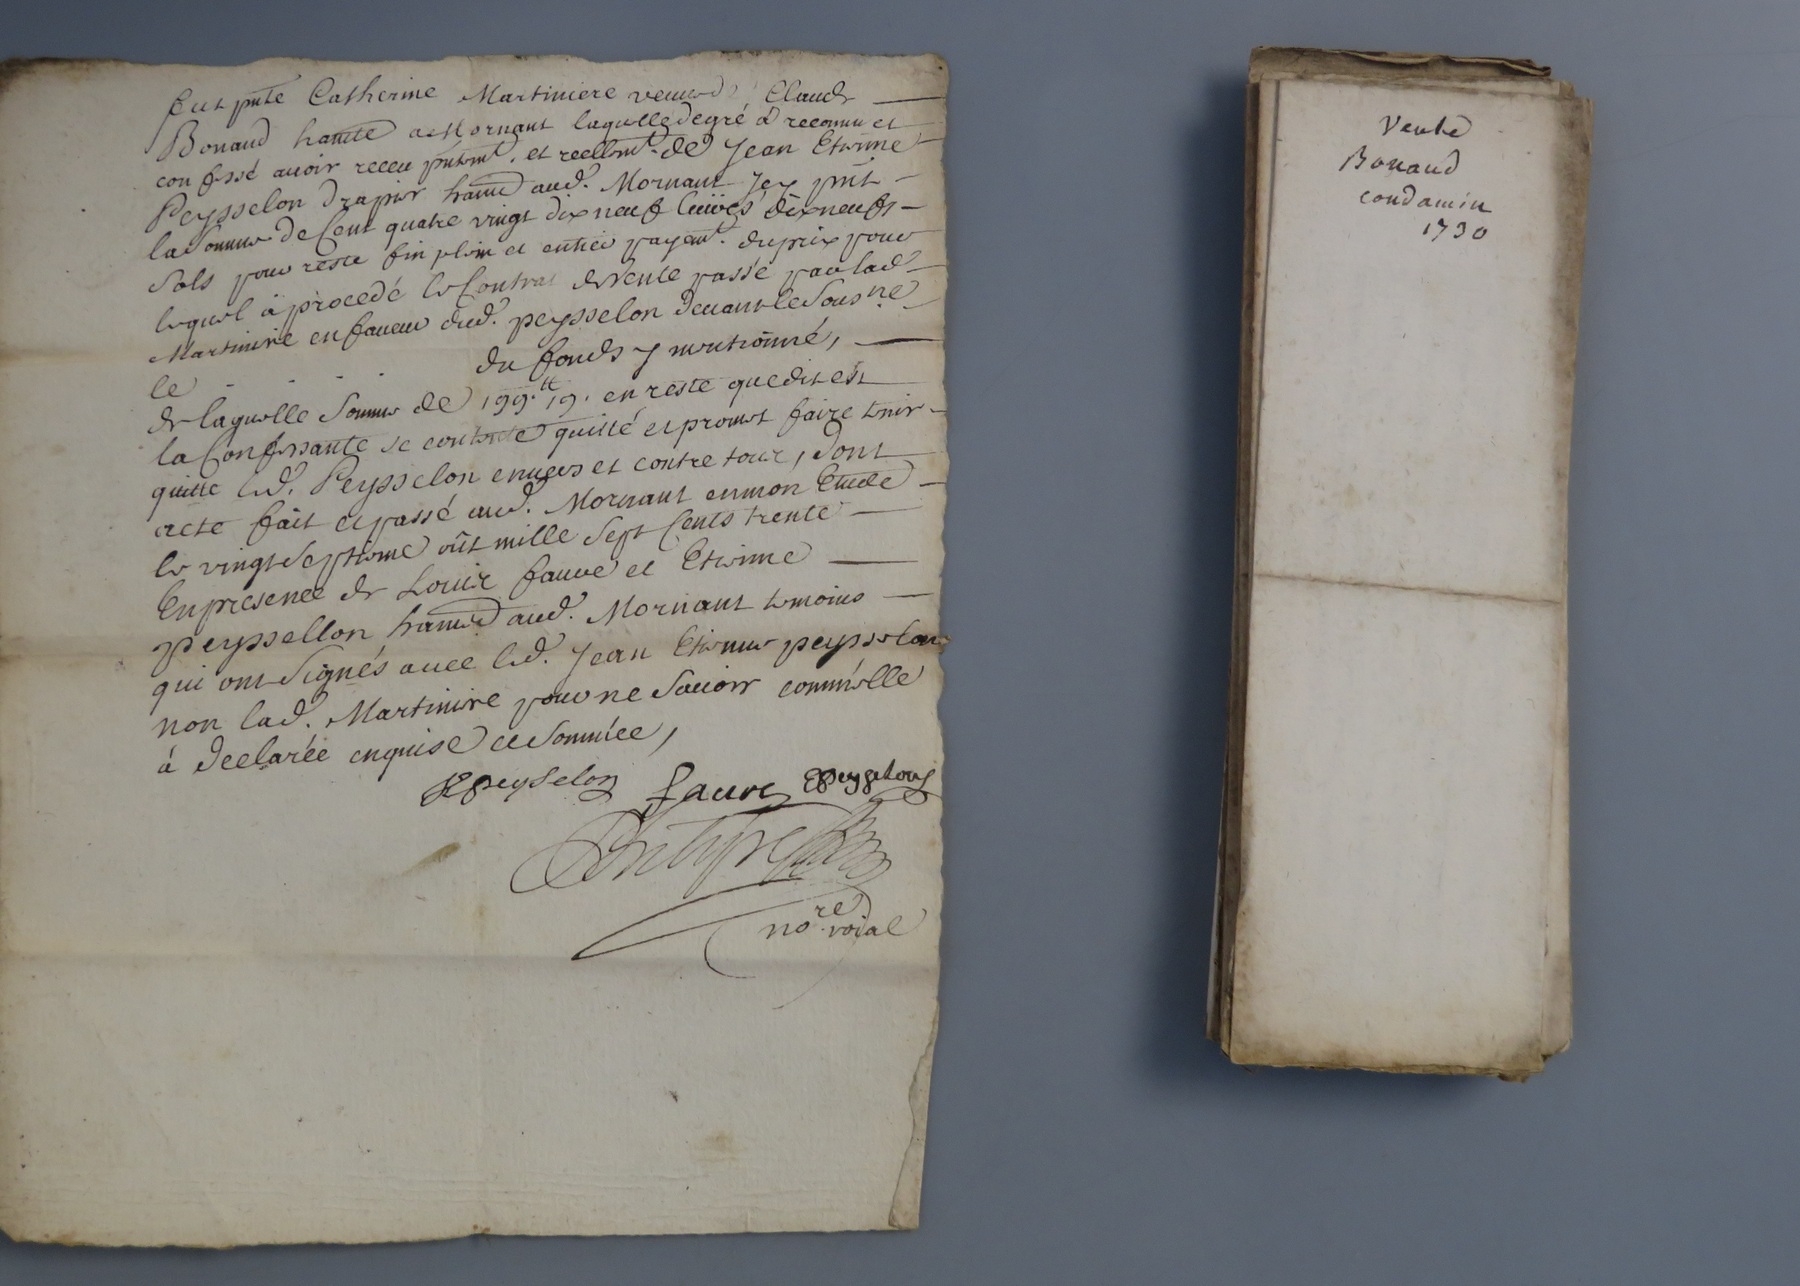 fut pnte Catherine Martiniere veuve de Claude
Bonaud hante a Mornant laquelle de gré à reconnu et
confessé avoir receu pntemt. et reellemt. de Jean Etienne
Peysselon drapier hant aud. Mornant Icy pnt
la Somme de Cent quatre vingt dix neuf livres dixneufs
Sols pour reste fin plein et entier payemt. du prix pour
lequel à procedé le Contrat de Vente passé par lad
Martiniere en faveur dud. peysselon devant le Sousne
le du fonds y mentionné,
de laquelle Somme de 199.tt 19. en reste que dit est
la Confessante se contente quitté et promet faire tenir
quitte led. Peysselon envers et contre tous, dont
acte fait et passé aud. Mornant en mon Etude
le vingt Septieme oût mille Sept Cents trente
En presence de Louis faure et Etienne
peyssellon hants aud. Mornant temoins
qui ont Signés avec led. Jean Etienne peysselon
non lad. Martiniere pour ne Savoir comm'elle
à declarée enquise et Sommée,
peyselon faure peyselon
nore. roial
Vente
Bonaud
condamin
1730